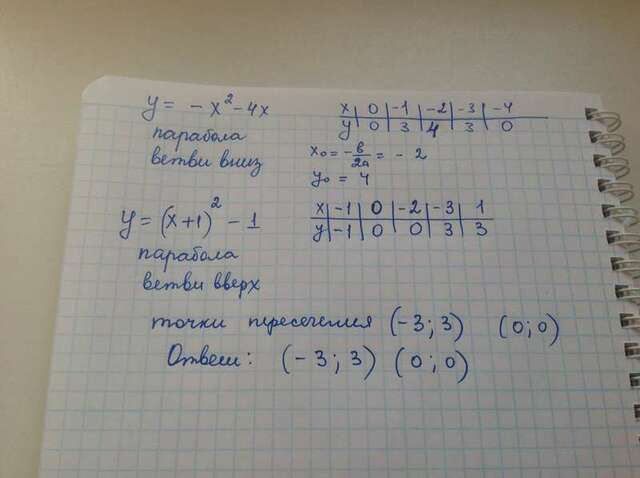 y = -x² - 4x
парабола
ветви вниз
x | 0 | -1 | -2 | -3 | -4
y | 0 | 3 | 4 | 3 | 0
x₀ = -в/2a = -2
y₀ = 4
y = (x+1)² - 1
парабола
ветви вверх
x | -1 | 0 | -2 | -3 | 1
y | -1 | 0 | 0 | 3 | 3
точки пересечения (-3; 3) (0; 0)
Ответ: (-3; 3) (0; 0)